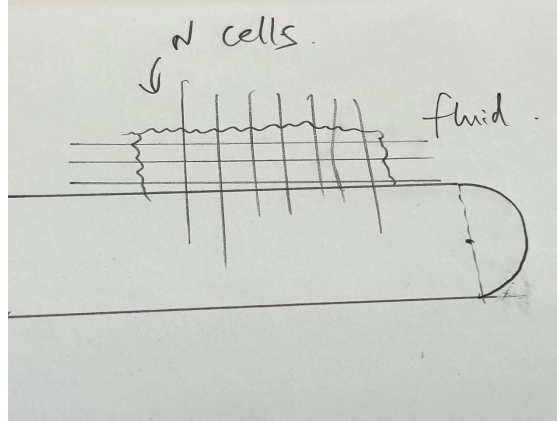 N cells.
fluid.